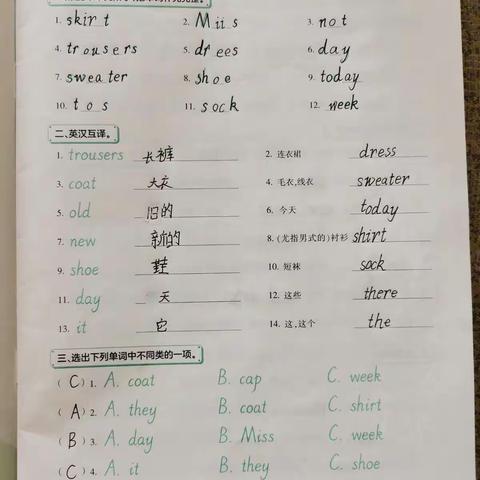 1. skirt 2. Miis 3. not
4. trousers 5. drees 6. day
7. sweater 8. shoe 9. today
10. tos 11. sock 12. week
二、英汉互译。
1. trousers 长裤 2. 连衣裙 dress
3. coat 大衣 4. 毛衣,线衣 sweater
5. old 旧的 6. 今天 today
7. new 新的 8. (尤指男式的)衬衫 shirt
9. shoe 鞋 10. 短袜 sock
11. day 天 12. 这些 there
13. it 它 14. 这,这个 the
三、选出下列单词中不同类的一项。
(C) 1. A. coat B. cap C. week
(A) 2. A. they B. coat C. shirt
(B) 3. A. day B. Miss C. week
(C) 4. A. it B. they C. shoe